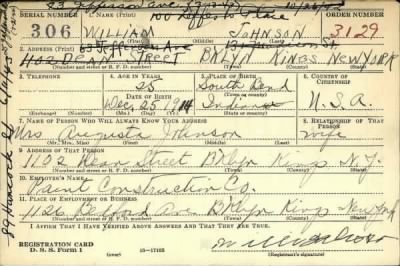 83 Jefferson Ave
100 Jefferson Place
SERIAL NUMBER 1. NAME (Print) ORDER NUMBER
306 WILLIAM JOHNSON 3129
(First) (Middle) (Last)
63 Jefferson Ave
2. ADDRESS (Print)
1102 DEAN STREET BKLYN KINGS NEW YORK
(Number and street or R. F. D. number) (Town) (County) (State)
3. TELEPHONE 4. AGE IN YEARS 5. PLACE OF BIRTH 6. COUNTRY OF CITIZENSHIP
25 South Bend
DATE OF BIRTH (Town or county)
Dec. 25 1914 Indiana U.S.A.
(Exchange) (No.) (Mo.) (Day) (Yr.) (State or country)
7. NAME OF PERSON WHO WILL ALWAYS KNOW YOUR ADDRESS 8. RELATIONSHIP OF THAT PERSON
Mrs Augusta Johnson wife
(Mr., Mrs., Miss) (First) (Middle) (Last)
9. ADDRESS OF THAT PERSON
1102 Dean Street Bklyn Kings N.Y.
(Number and street or R. F. D. number) (Town) (County) (State)
10. EMPLOYER'S NAME
Construction Co.
11. PLACE OF EMPLOYMENT OR BUSINESS
1126 Bedford Ave Bklyn Kings New York
(Number and street or R. F. D. number) (Town) (County) (State)
I AFFIRM THAT I HAVE VERIFIED ABOVE ANSWERS AND THAT THEY ARE TRUE.
REGISTRATION CARD
D. S. S. Form 1 16—17105 (Registrant's signature)